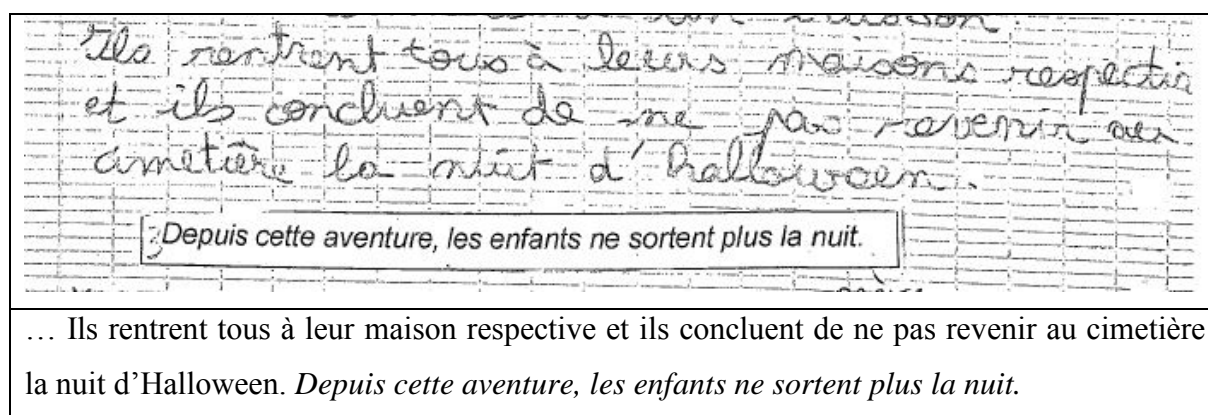 Ils rentrent tous à leurs maisons respectiv
et ils concluent de ne pas revenir au
cimetière la nuit d'halloween.
Depuis cette aventure, les enfants ne sortent plus la nuit.
… Ils rentrent tous à leur maison respective et ils concluent de ne pas revenir au cimetière
la nuit d’Halloween. Depuis cette aventure, les enfants ne sortent plus la nuit.